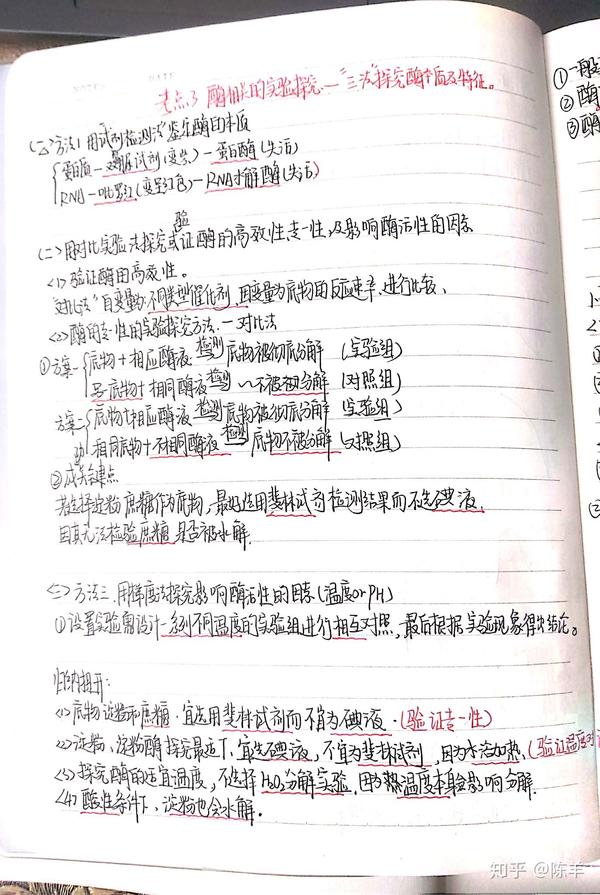 NOTES DATE
考点3 酶相关的实验探究——"三法"探究酶本质及特征。
方法1 用试剂检测法鉴定酶的本质
蛋白质—双缩脲试剂(变紫)—蛋白酶(失活)
RNA—吡罗红(变呈红色)—RNA水解酶(失活)
验
(二)用对比实验法探究或证酶的高效性专一性,及影响酶活性的因素
<1>验证酶的高效性。
对比法"自变量为不同类型催化剂,因变量为底物的反应速率,进行比较、
<2>酶的专一性的实验探究方法.—对比法
①方案一 底物+相应酶液 检测 底物被彻底分解 (实验组)
另一底物+相同酶液 检测 不被分解 (对照组)
方案二 底物+相应酶液 检测 底物被彻底分解 (实验组)
相同底物+不相同酶液 检测 底物不被分解 (对照组)
②成关键点
若选择淀粉蔗糖作为底物,最好选用斐林试剂检测结果而不选碘液.
因其无法检验蔗糖是否被水解.
方法三.用梯度法探究影响酶活性的因素(温度orPH)
①设置实验需设计一系列不同温度的实验组进行相互对照,最后根据实验现象得出结论。
归纳提升:
<1>底物淀粉和蔗糖.宜选用斐林试剂而不宜为碘液.(验证专一性)
<2>淀粉、淀粉酶探究最适T、宜选碘液,不宜为斐林试剂,因为水浴加热.(验证温度
<3>探究酶的适宜温度,不选择H₂O₂分解实验.因为温度本身影响分解.
<4>酸性条件下,淀粉也会水解.
①一般
②酶
③酶
知乎 @陈羊